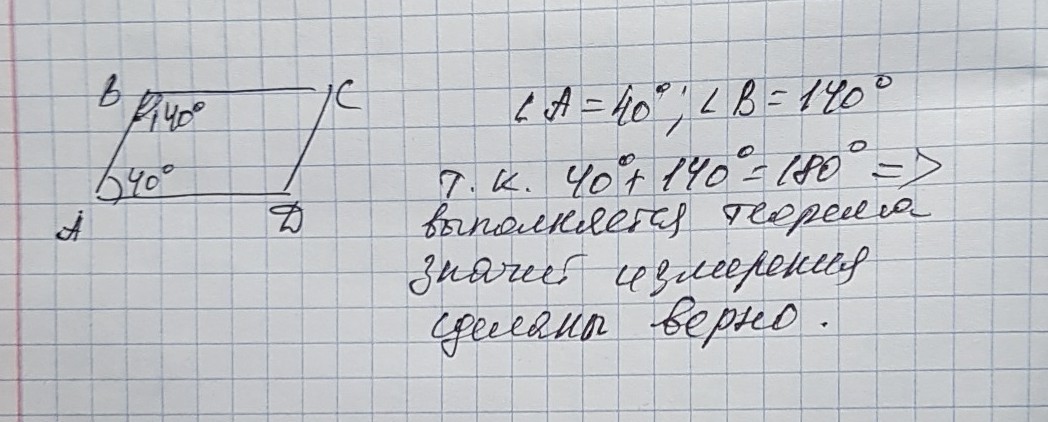 B C
140°
40°
A D
∠A = 40°; ∠B = 140°
т. к. 40° + 140° = 180° =>
выполняется теорема
значит измерения
сделаны верно.